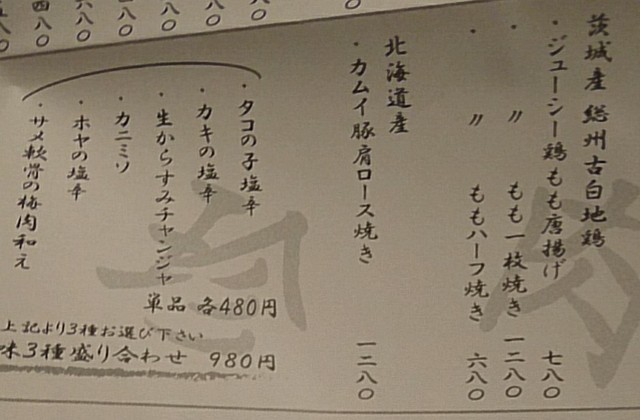 茨城産 総州古白地鶏
・ジューシー鶏もも唐揚げ 七八〇
・〃 もも一枚焼き 一二八〇
・〃 ももハーフ焼き 六八〇
北海道産
・カムイ豚肩ロース焼き 一二八〇
・タコの子塩辛
・カキの塩辛
・生からすみチャンジャ
・カニミソ
・ホヤの塩辛
・サメ軟骨の梅肉和え
単品 各480円
上記より3種お選び下さい
味3種盛り合わせ 980円